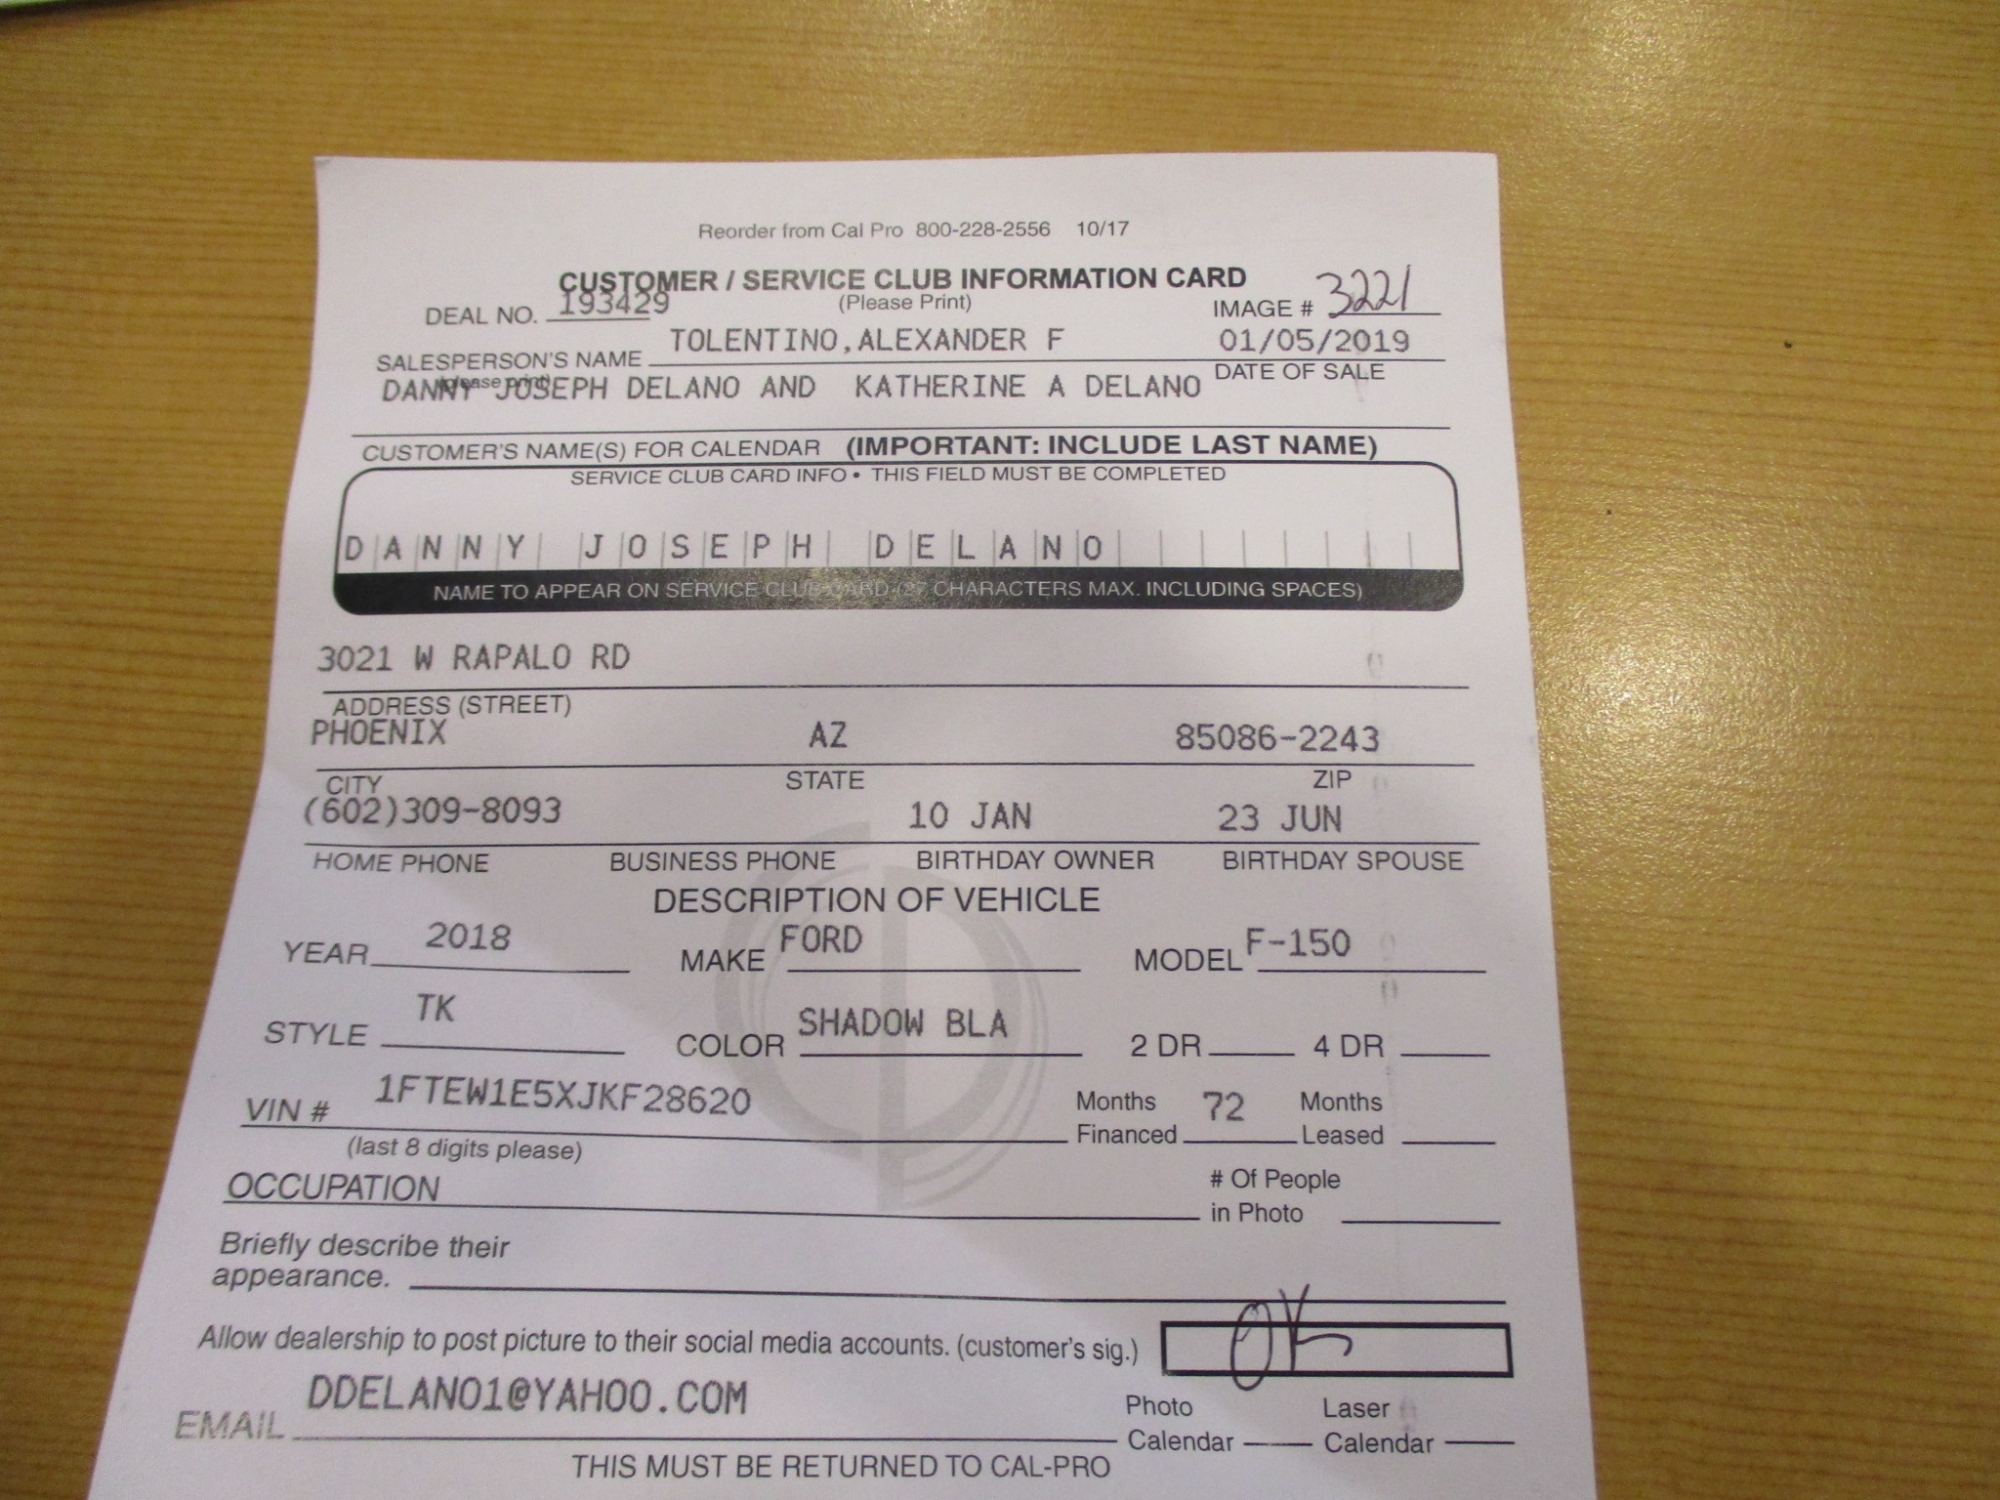 Reorder from Cal Pro 800-228-2556 10/17
CUSTOMER / SERVICE CLUB INFORMATION CARD
(Please Print)
DEAL NO. 193429
IMAGE # 3221
SALESPERSON'S NAME TOLENTINO,ALEXANDER F
(please print)
01/05/2019
DATE OF SALE
DANNY JOSEPH DELANO AND KATHERINE A DELANO
CUSTOMER'S NAME(S) FOR CALENDAR (IMPORTANT: INCLUDE LAST NAME)
SERVICE CLUB CARD INFO • THIS FIELD MUST BE COMPLETED
DANNY JOSEPH DELANO
NAME TO APPEAR ON SERVICE CLUB CARD (27 CHARACTERS MAX. INCLUDING SPACES)
3021 W RAPALO RD
ADDRESS (STREET)
PHOENIX AZ 85086-2243
CITY STATE ZIP
(602)309-8093 10 JAN 23 JUN
HOME PHONE BUSINESS PHONE BIRTHDAY OWNER BIRTHDAY SPOUSE
DESCRIPTION OF VEHICLE
YEAR 2018 MAKE FORD MODEL F-150
STYLE TK COLOR SHADOW BLA 2 DR 4 DR
VIN # 1FTEW1E5XJKF28620
(last 8 digits please)
Months Financed 72 Months Leased
OCCUPATION
# Of People in Photo
Briefly describe their
appearance.
Allow dealership to post picture to their social media accounts. (customer's sig.) OK
EMAIL DDELANO1@YAHOO.COM
Photo Calendar Laser Calendar
THIS MUST BE RETURNED TO CAL-PRO